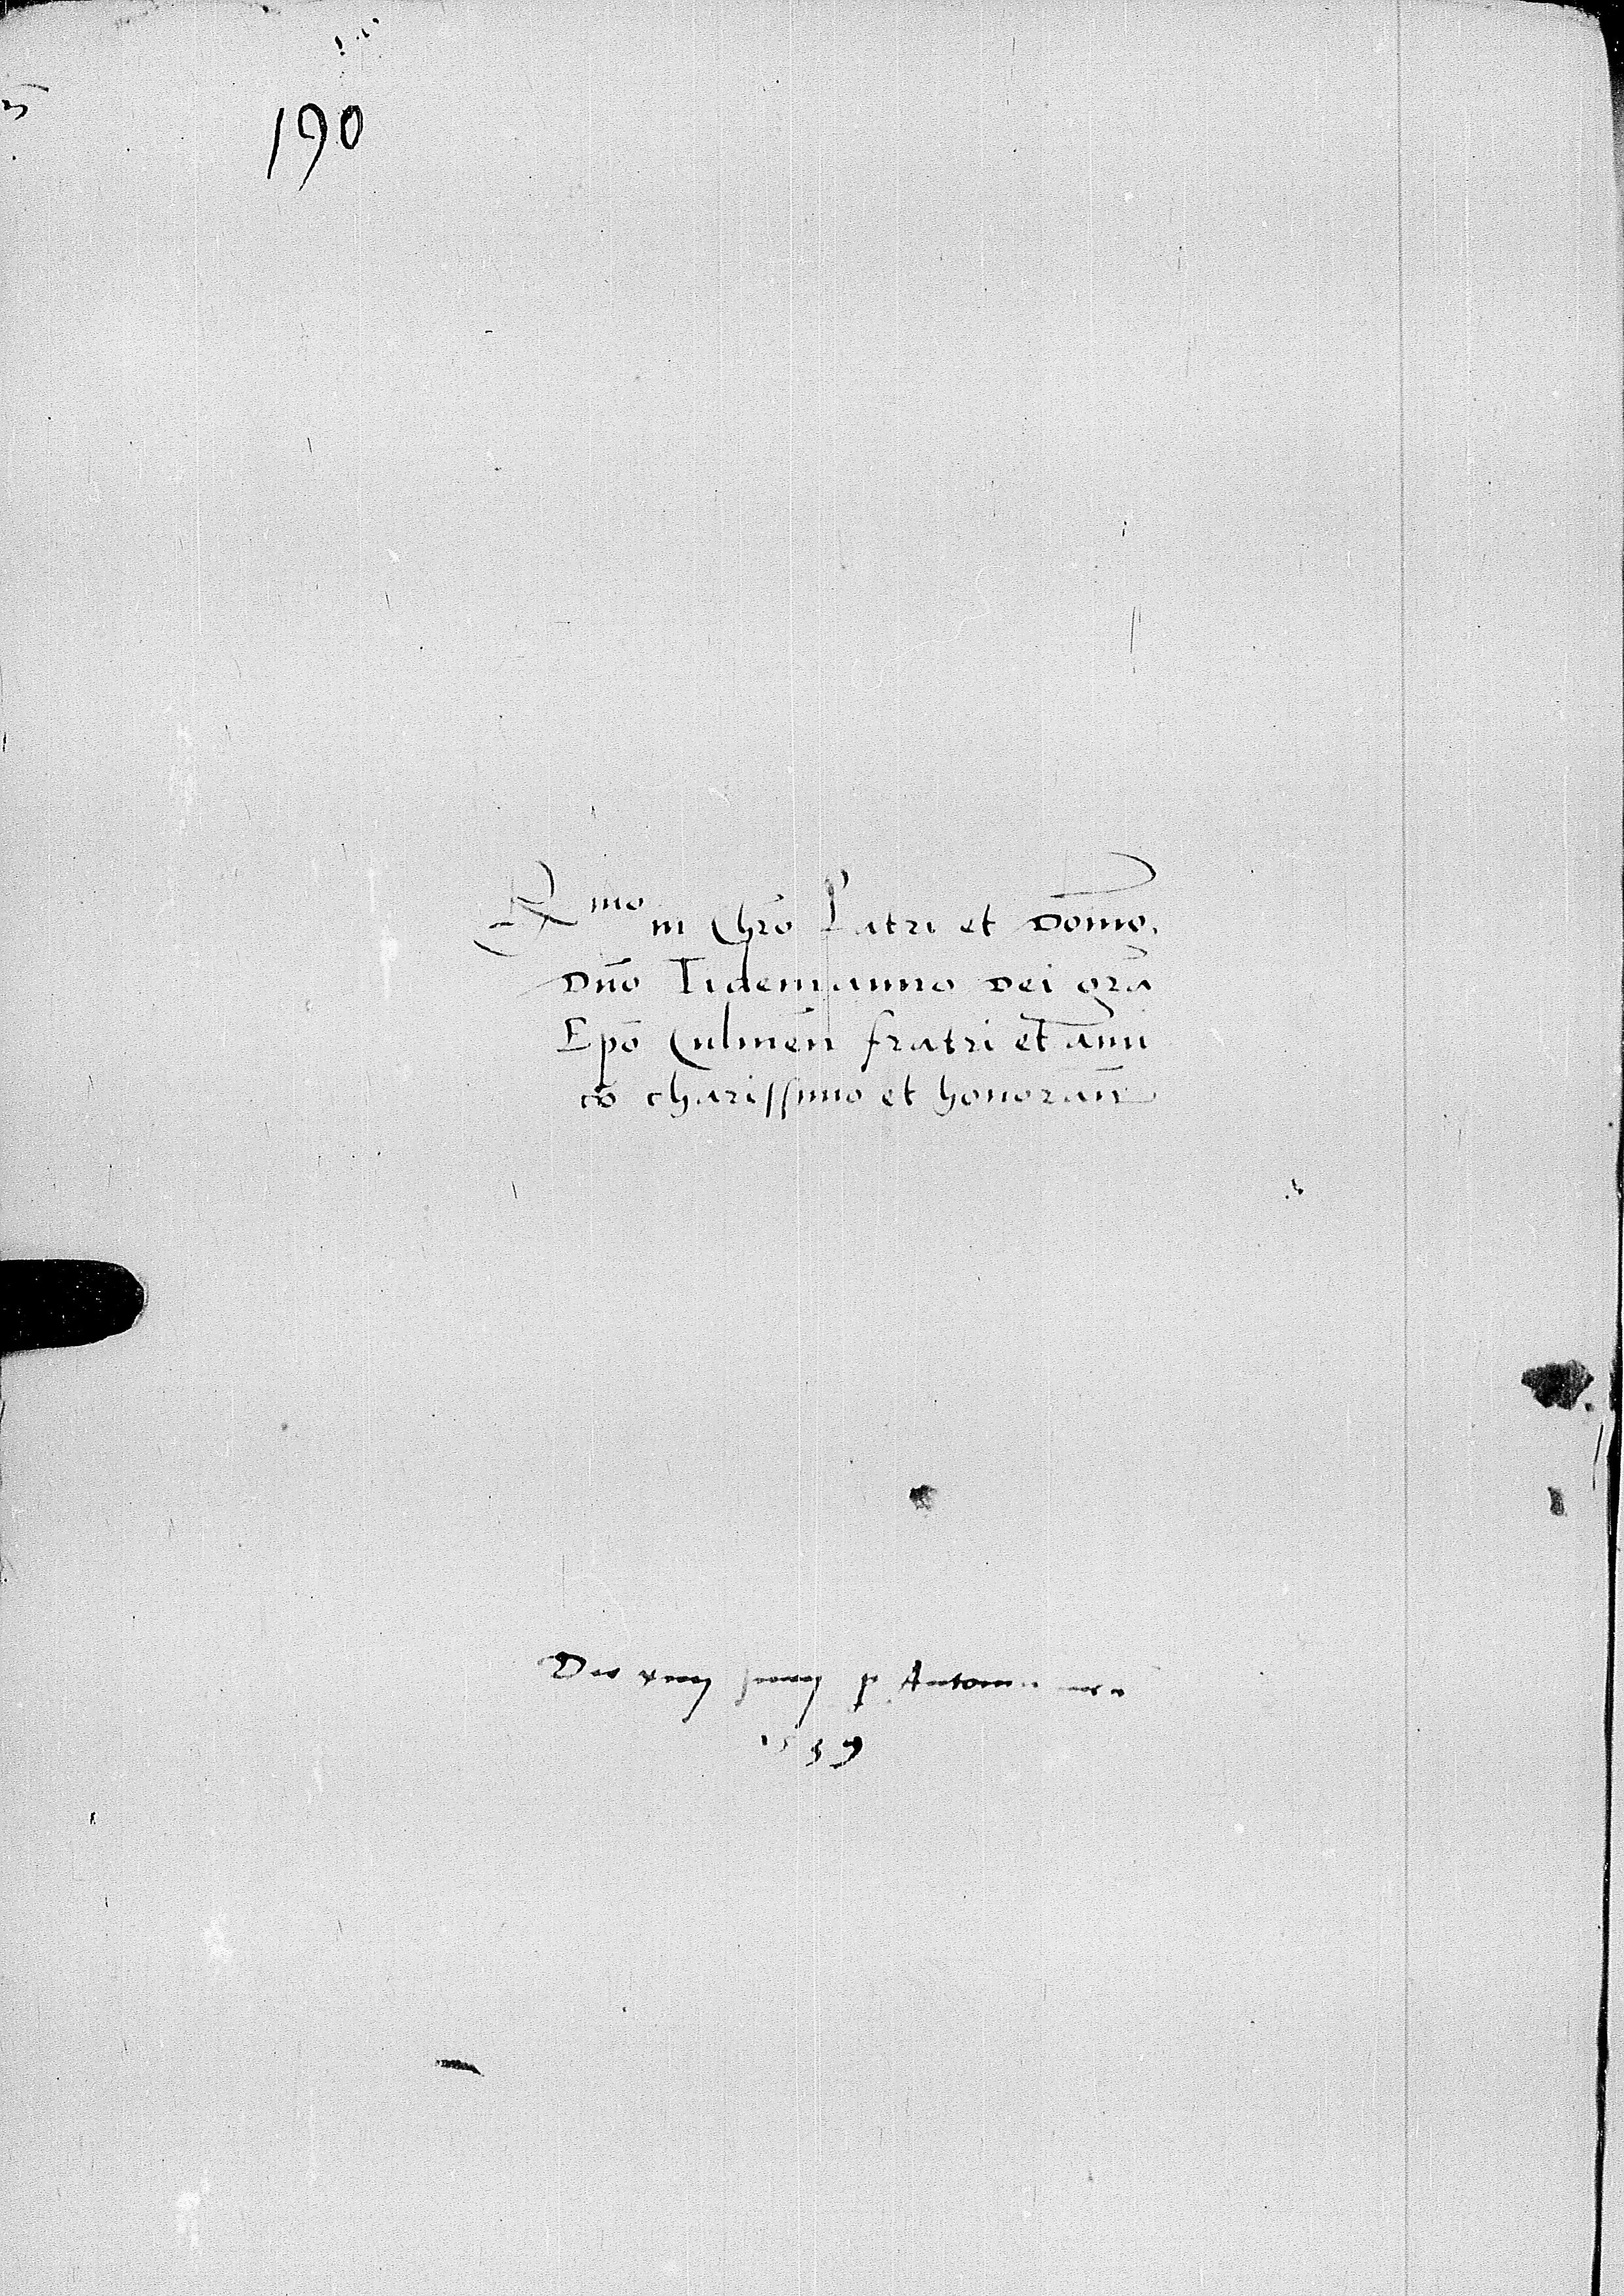 190
R mo in Chro Patri et Domo.
Dno Tidemanno Dei gra
Epo Culmen fratri et ami
co charissimo et honoran
Antonii
1539